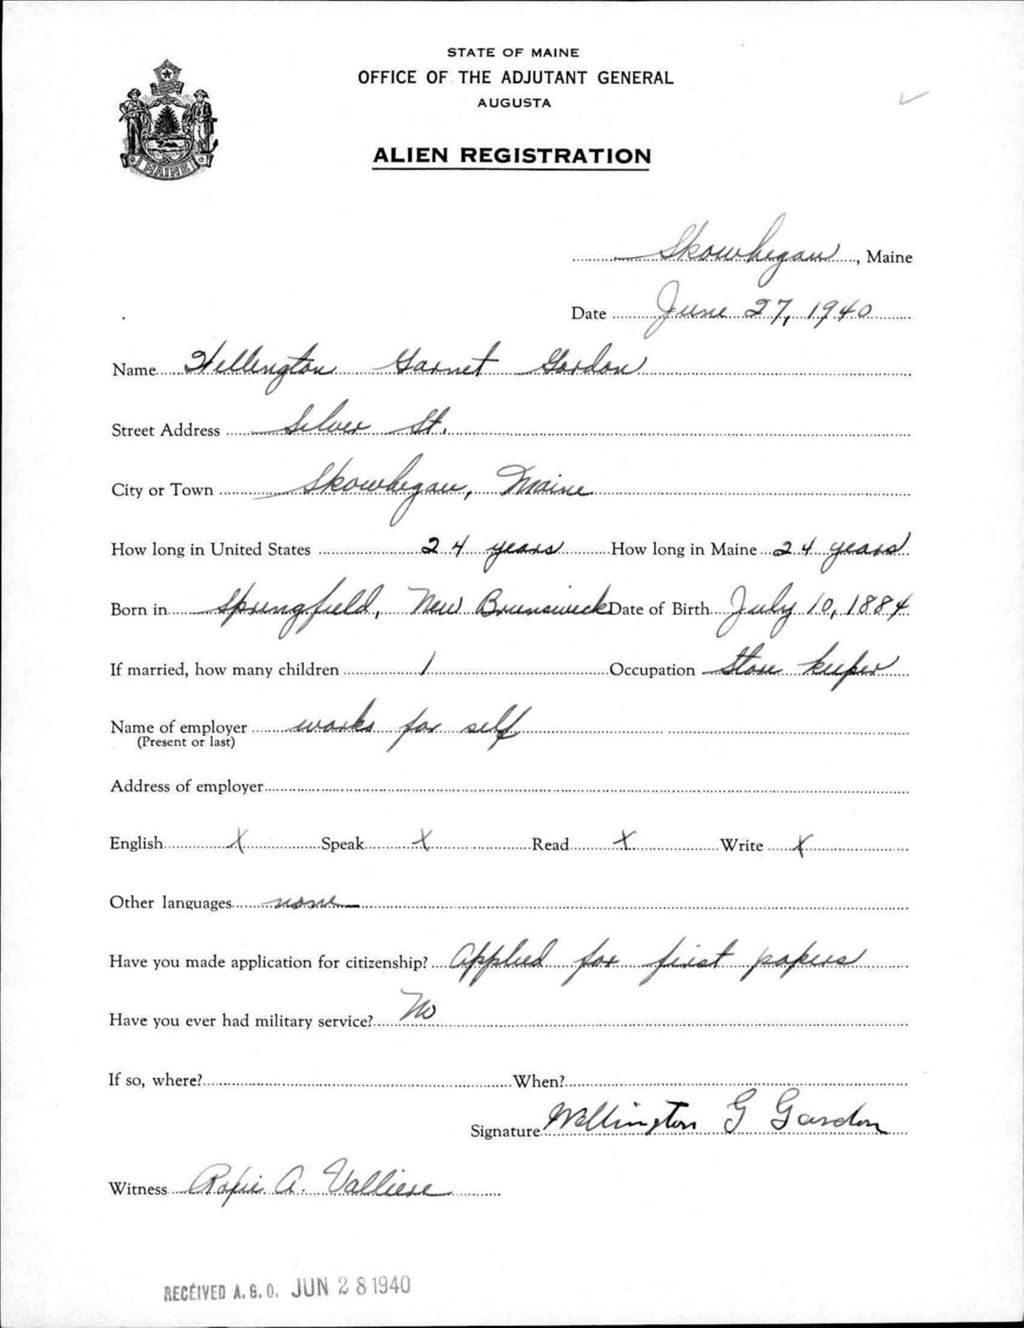 STATE OF MAINE
OFFICE OF THE ADJUTANT GENERAL
AUGUSTA
ALIEN REGISTRATION
MAINE
Skowhegan, Maine
Date June 27, 1940
Name Wellington Garnet Gordon
Street Address Silver St.
City or Town Skowhegan, Maine
How long in United States 24 years How long in Maine 24 years
Born in Springfield, New Brunswick Date of Birth July 10, 1884
If married, how many children 1 Occupation Store keeper
Name of employer works for self
(Present or last)
Address of employer
English X Speak X Read X Write X
Other languages none
Have you made application for citizenship? Applied for first papers
Have you ever had military service? No
If so, where? When?
Signature Wellington G Gordon
Witness A. Valliere
RECEIVED A.G.O. JUN 28 1940